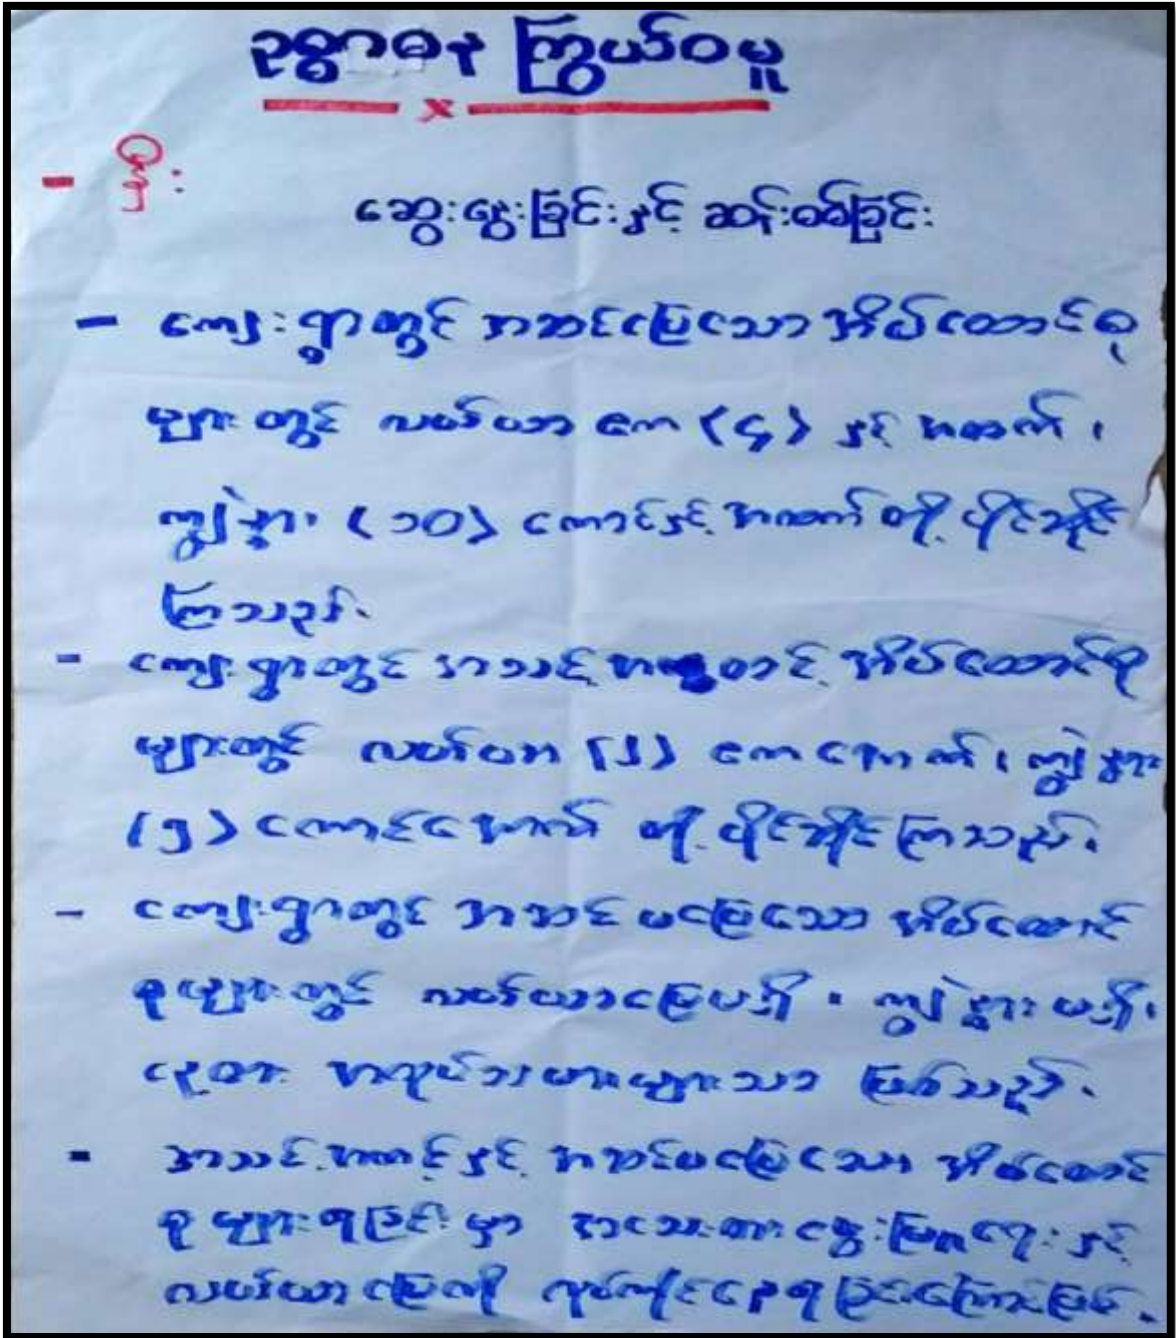 ဥစ္စာဓန ကြွယ်ဝမှု
x
- ဦး
ဆွေးနွေးခြင်းနှင့် ဆန်းစစ်ခြင်း
- ကျေးရွာတွင် အဆင်ပြေသော အိမ်ထောင်စု
များတွင် လယ်ယာ ဧက (၄) နှင့် အထက်၊
ကျွဲနွား (၁၀) ကောင်နှင့် အထက် တို့ ပိုင်ဆိုင်
ကြသည်။
- ကျေးရွာတွင် အသင့်အတင့် အိမ်ထောင်စု
များတွင် လယ်ယာ (၂) ဧကအောက်၊ ကျွဲနွား
(၅) ကောင်အောက် တို့ ပိုင်ဆိုင်ကြသည်။
- ကျေးရွာတွင် အဆင်မပြေသော အိမ်ထောင်
စုများတွင် လယ်ယာမြေမရှိ၊ ကျွဲနွားမရှိ၊
နေ့စား အလုပ်သမားများသာ ဖြစ်သည်။
- အသင့်အတင့်နှင့် အဆင်မပြေသော အိမ်ထောင်
စုများရခြင်းမှာ အသေးစားငွေးမြူရေးနှင့်
လယ်ယာမြေကို လုပ်ကိုင်နေရခြင်းကြောင့်ဖြစ်။